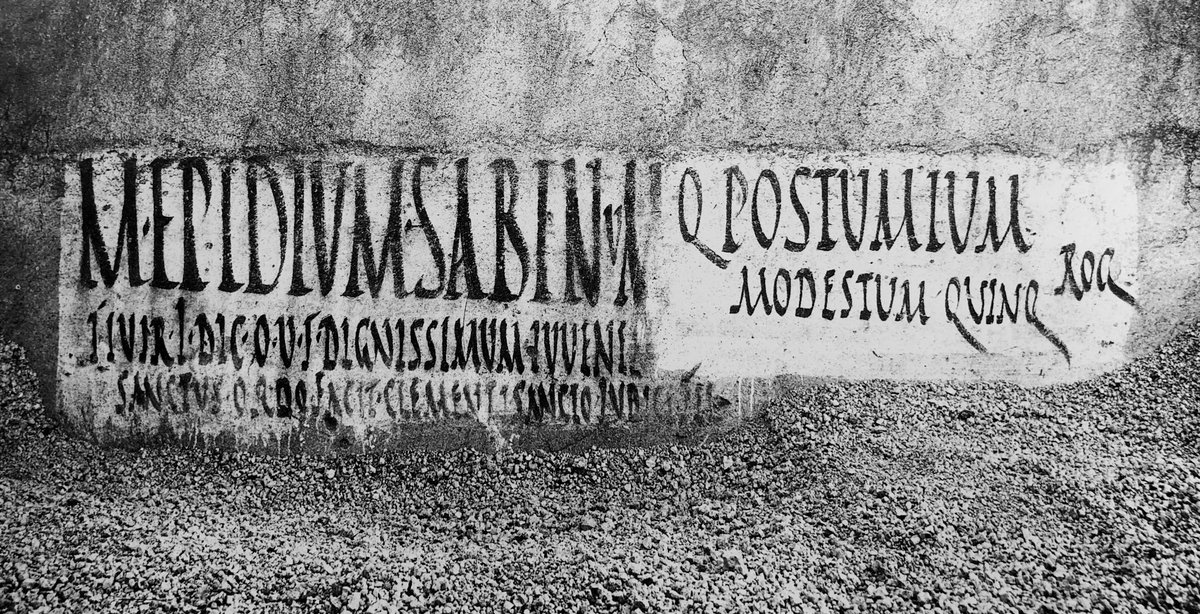 M·EPIDIUM·SABINUM
IIVIR·I·DIC·O·V·F·DIGNISSIMUM·IUVENE
SANCTUS·ORDO·FACIT·CLEMENTI·SANCTO
Q POSTUMIUM
MODESTUM QUINQ
ROG